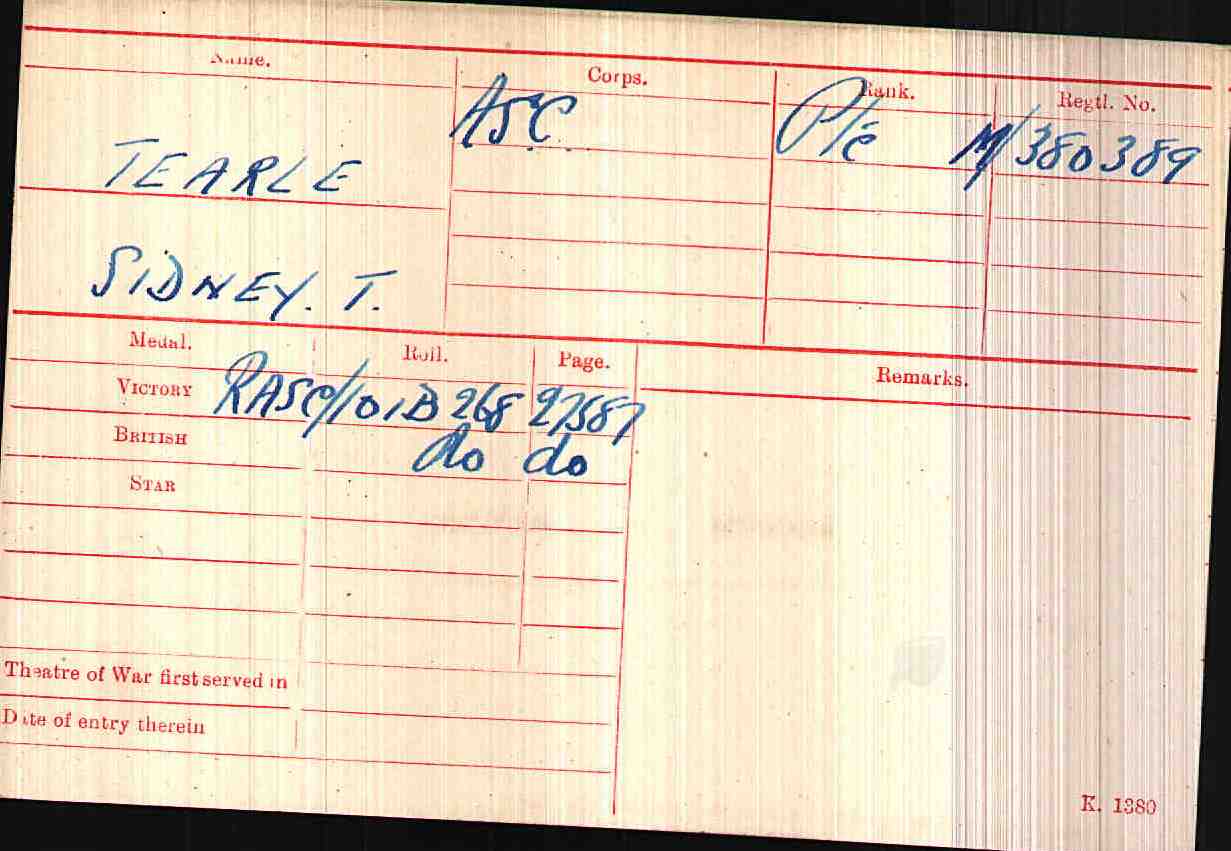 Name. Corps. Rank. Regtl. No.
ASC P/e M/380389
TEARLE
SIDNEY. T.
Medal. Roll. Page. Remarks.
VICTORY RASC/101B268 27587
BRITISH do do
STAR
Theatre of War first served in
Date of entry therein
K. 1380